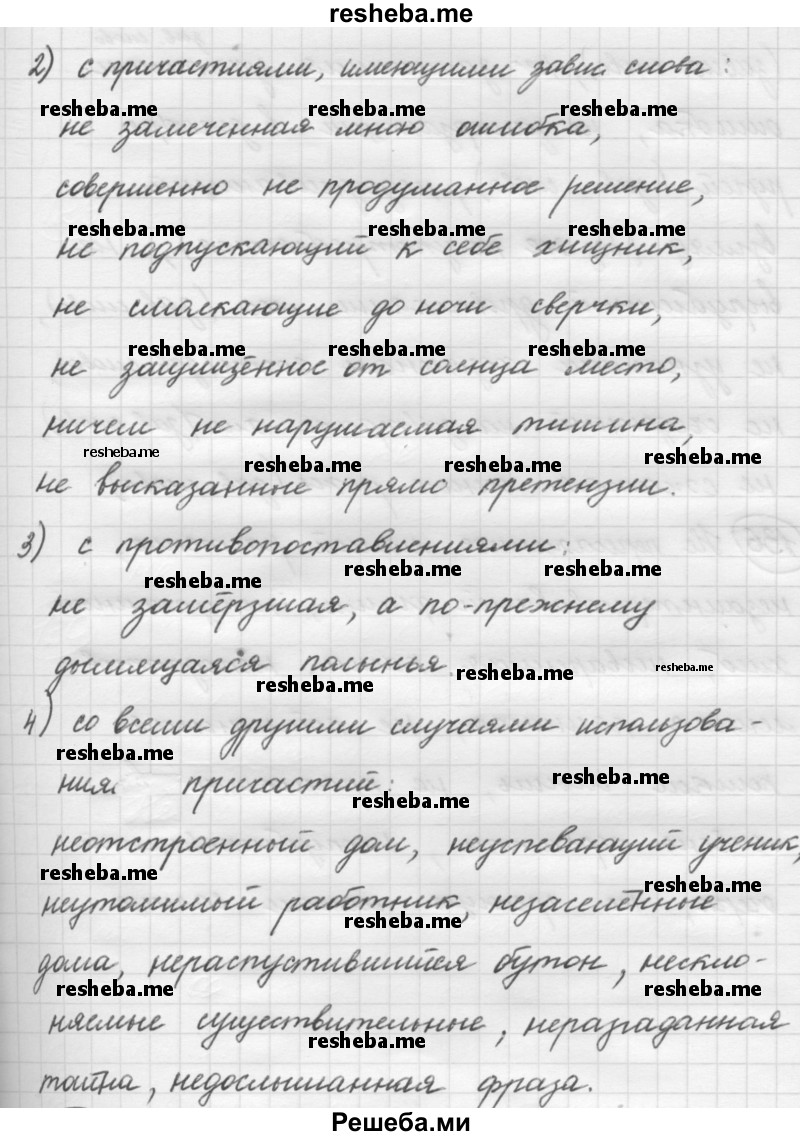 resheba.me
2) с причастиями, имеющими завис. слова:
resheba.me resheba.me resheba.me
не замеченная мною ошибка,
совершенно не продуманное решение,
resheba.me resheba.me resheba.me
не подпускающий к себе хищник,
не смолкающие до ночи сверчки,
resheba.me resheba.me resheba.me
не защищённое от солнца место,
ничем не нарушаемая тишина,
resheba.me resheba.me resheba.me resheba.me
не высказанные прямо претензии.
3) с противопоставлениями:
resheba.me resheba.me resheba.me
не замёрзшая, а по-прежнему
дымящаяся полынья.
resheba.me resheba.me resheba.me
4) со всеми другими случаями использова-
resheba.me resheba.me
ния причастий:
resheba.me
неотстроенный дом, неуспевающий ученик,
resheba.me resheba.me
неутомимый работник, незаселённые
resheba.me
дома, нераспустившийся бутон, нескло-
resheba.me resheba.me
няемые существительные, неразгаданная
resheba.me
тайна, недослышанная фраза.
Решеба.ми